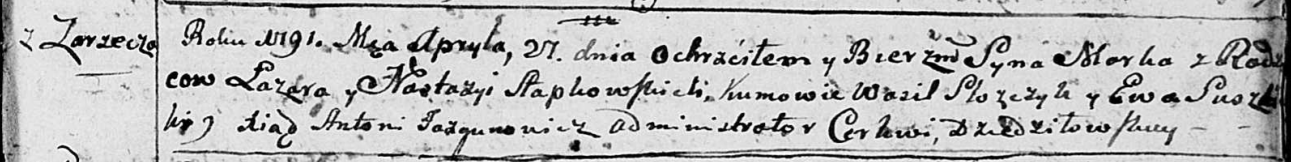 z Zarzecza
Roku 1791. Mca Apryla, 27. dnia ochrzciłem y Bierzm Syna Marka z Rodzi
cow Łazara y Nastazyi Stapkowskich, Kumowie Wasil y Ewa
xiąd Antoni Jazgunowicz administrator Cerkwi, Dziedziłowskiey